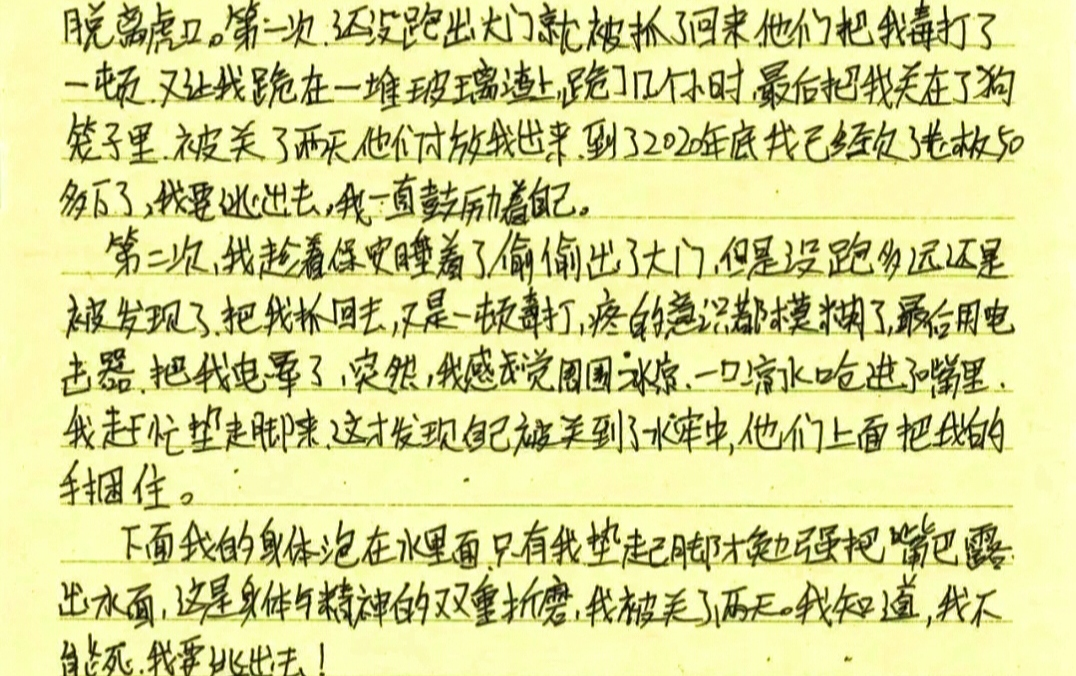 脱离虎口。第一次,还没跑出大门就被抓了回来他们把我毒打了
一顿.又让我跪在一堆玻璃渣上,跪了几个小时,最后把我关在了狗
笼子里.被关了两天他们才放我出来.到了2020年底我已经欠了老板50
多万了,我要逃出去,我一直鼓励着自己。
第二次,我趁着保安睡着了偷偷出了大门,但是没跑多远还是
被发现了.把我抓回去,又是一顿毒打,疼的意识都模糊了,最后用电
击器.把我电晕了,突然,我感觉周围冰凉.一口凉水呛进了嘴里.
我赶忙垫起脚来,这才发现自己被关到了水牢中,他们上面把我的
手捆住。
下面我的身体泡在水里面,只有我垫起脚才勉强把嘴巴露
出水面,这是身体与精神的双重折磨,我被关了两天。我知道,我不
能死.我要逃出去!